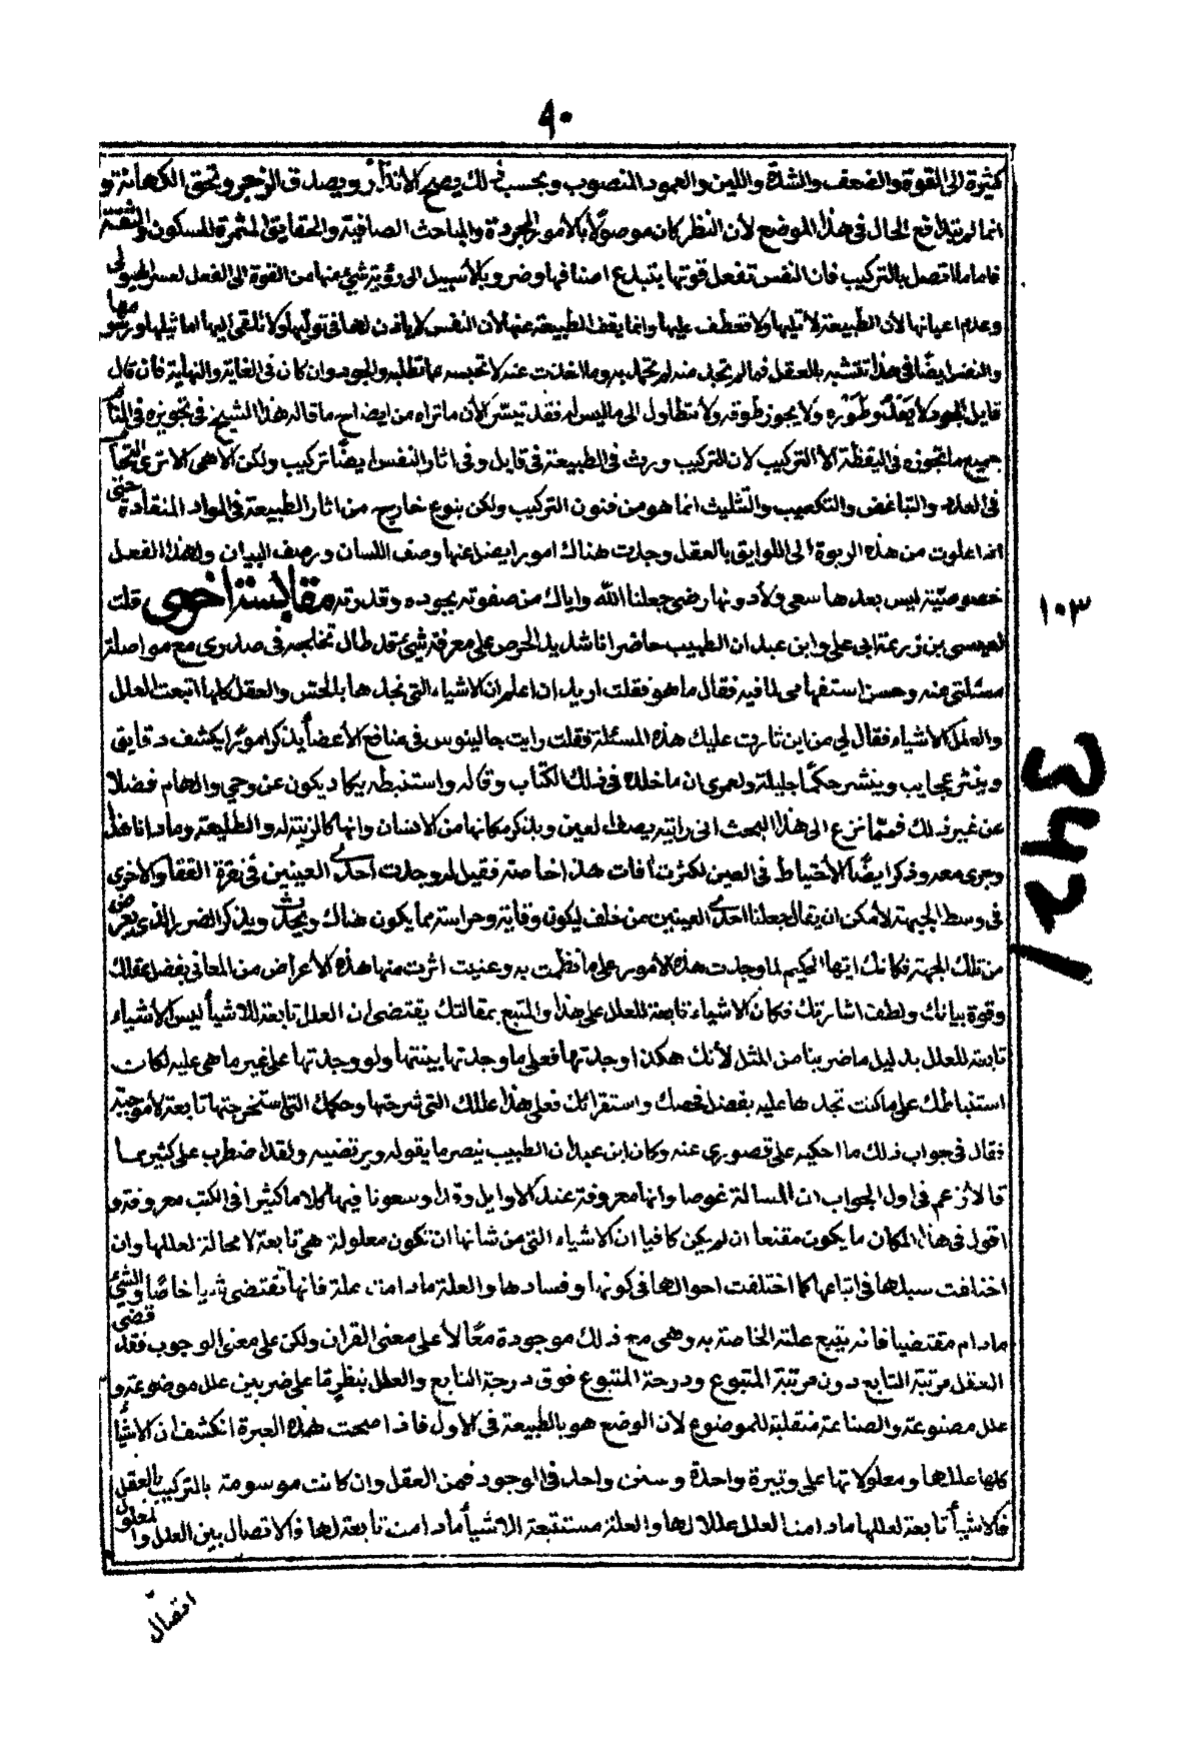 ٩٠
كثيرة الى القوة والضعف والشدة واللين والعمود النصوب وبحسب ذلك يصح الأنذار ويصدق الزجر وتحق الكهانة و
انما لم يتدافع الحال فى هذا الموضع لأن النظر كان موصولا بالأمور الموجودة والمباحث الصافية والحقايق المثمرة للسكون والثقة
فاما ما اتصل بالتركيب فان النفس تفعل قوتها بتبدع اصنافها وضروبا لا سبيل الى رؤية شئ منها من القوة الى الفعل لعسر الهيولى
وعدم اعيانها لأن الطبيعة لا تليها ولا تعطف عليها وانما يقف الطبيعة عنها لأن النفس لا ياذن لها فى توليها ولا تلقى اليها اماثيلها ورسومها
والنفس ايضًا فى هذا تتشبه بالعقل فما لم تجد منه لم تحمل به وما اخذت عنه لا تحبسه عما تطلبه والجود وان كان فى الغاية والنهاية فان قال
قايل الجود لا يَعْدُو طَوْره ولا يجوز طوقه ولا تتطاول الى ما ليس له فقد تيسّر الآن ما تراه من ايضاح ما قاله هذا الشيخ فى تجويزه فى المنام
جميع ما تجوزه فى اليقظة الا التركيب لان التركيب ورث فى الطبيعة فى قابل وفى اثار النفس ايضًا تركيب ولكن الاهى الا ترى التحاب
فى العدد والتباغض والتكعيب والتثليث انما هو من فنون التركيب ولكن بنوع خارج من اثار الطبيعة فى المواد المنقادة حتى
اذا علوت من هذه الربوة الى اللوايق بالعقل وجدت هناك امورا يضل عنها وصف اللسان ورصف البيان ولهذا الفصل
خصوصيّة ليس بعدها سعى ولا دونها رضى جعلنا الله واياك من صفوته بجوده وقدرته مقابسة اخرى قلت
لعيسى بن زرعة ابى على وابن عبدان الطبيب حاضر انا شديد الحرص على معرفة شئ قد طال تخلجه فى صدرى مع مواصلة
مسئلتى عنه وحسن استفهامى لما فيه فقال ما هو فقلت اريد ان اعلم ان الاشياء التى نجدها بالحس والعقل كلها اتبعت العلل
والعلل الاشياء فقال لى من اين ثارت عليك هذه المسئلة فقلت رايت جالينوس فى منافع الأعضاء يذكر امورًا يكشف دقايق
وينثر عجايب وينشر حكمًا جليلة ولعمرى ان ما خلده فى ذلك الكتاب وقاله واستنبطه يكاد يكون عن وحى والهام فضلا
عن غير ذلك فممّا نزع الى هذا البحث انى رايته يصف العين ويذكر مكانها من الانسان وانها كالزينة له والطليعة وما دانا هذا
وجرى معه وذكر ايضًا الأحتياط فى العين لكثرت افات هذا خاصة فقيل لم وجدت احدى العينين فى نقرة القفا والاخرى
فى وسط الجبهة لأمكن ان يقال جعلنا احدى العينين من خلف ليكون وقاية وحراسة مما يكون هناك ويحدث ويذكر الضرر الذى يعرض
من تلك الجهة فكانك ايّها الحكيم لما وجدت هذه الأمور على ما نظمت به وعنيت اثرت منها هذه الأعراض من المعانى بفضل عقلك
وقوة بيانك ولطف اشارتك فكان الاشياء تابعة للعلل على هذا والمتبع بمقالتك يقتضى ان العلل تابعة للاشيأ ليس الأشياء
تابعة للعلل بدليل ما ضربنا من المثل لأنك هكذا وجدتها فعلى ما وجدتها بينتها ولو وجدتها على غير ما هى عليه لكان
استنباطك على ما كنت تجدها عليه بفضل فحصك واستقرائك فعلى هذا عللك التى شرحتها وحكمك التى استخرجتها تابعة لا موجبة
فقال فى جواب ذلك ما احكيه على قصورى عنه وكان ابن عبدان الطبيب ينصر ما يقوله ويرتضيه ولقد اضطرب على كثير مما
قالا زعم فى اول الجواب ان المسالة غوصا وانها معروفة عند الاوايل وقد اوسعونا فيها كلاما كثيرا فى الكتب معروفة و
اقول فى هذا المكان ما يكون مقنعا ان لم يكن كافيا ان الاشياء التى من شانها ان تكون معلولة هى تابعة لا محالة لعللها وان
اختلفت سبلها فى اتباعها كما اختلفت احوالها فى كونها وفسادها والعلة ما دامت علة فانها تقتضى شيا خاصًا والشئ
ما دام مقتضيا فانه يتبع علته الخاصة به وهى مع ذلك موجودة معًا لا على معنى القران ولكن على معنى الوجوب فقد قضى
العقل مرتبة التابع دون مرتبة المتبوع ودرجة المتبوع فوق درجة التابع والعلل بنظرٍ مّا على ضربين علل موضوعة و
علل مصنوعة والصناعة متقلبة للموضوع لأن الوضع هو بالطبيعة فى الاول فاذا اصحت هذه العبرة انكشف ان الاشيأ
كلها عللها ومعلولاتها على وتيرة واحدة وسنن واحد فى الوجود فمن العقل وان كانت موسومة بالتركيب بالعقل
فالاشيأ تابعة لعللها ما دامت العلل عللا لها والعلة مستتبعة الاشيأ ما دامت تابعة لها فالاتصال بين العلل والمعلول
اتصال
١٠٣